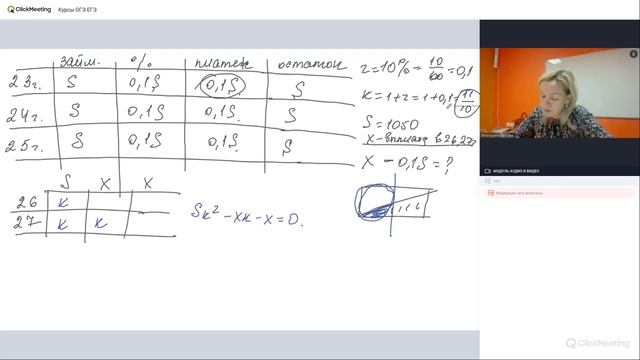 ClickMeeting Курсы ОГЭ ЕГЭ
займ. % платеж остаток
23г. S 0,1S 0,1S S
24г. S 0,1S 0,1S S
25г. S 0,1S 0,1S S
S x x
26 к
27 к к
Sк² - xк - x = 0.
r = 10% = 10/100 = 0,1
к = 1 + r = 1 + 0,1 = 11/10
S = 1050
x - выплата в 26, 27г
x - 0,1S = ?
МОДУЛЬ АУДИО И ВИДЕО
ЧАТ
ClickMeeting